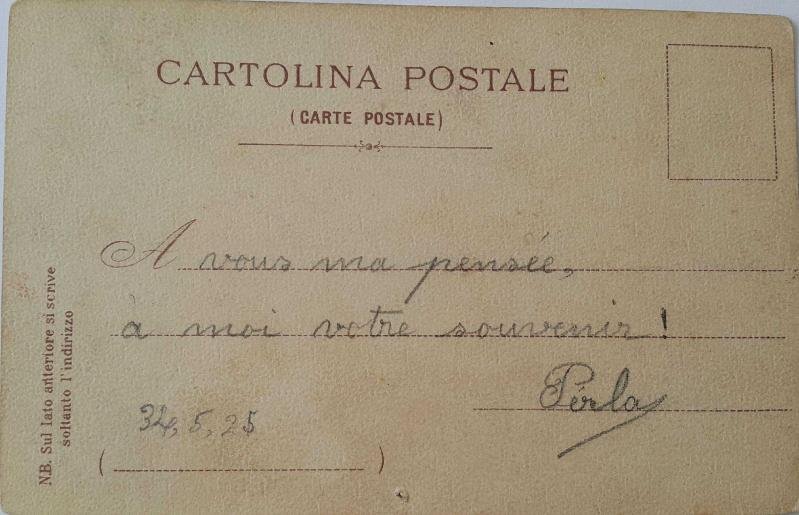 CARTOLINA POSTALE
(CARTE POSTALE)
A vous ma pensée,
à moi votre souvenir!
Perla
5, 25
N.B. Sul lato anteriore si scrive
soltanto l'indirizzo